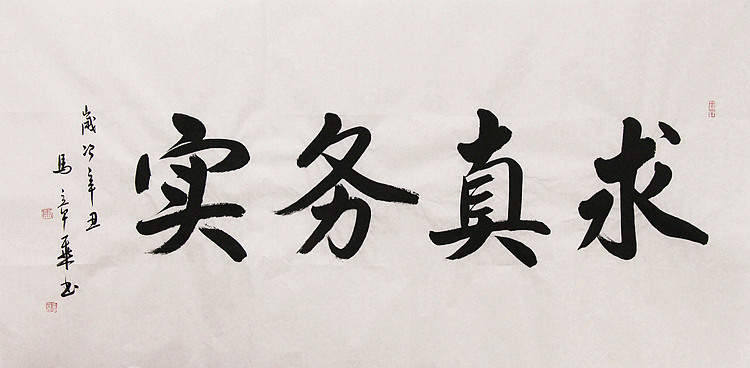 求真务实
歲次辛丑
馬章華书